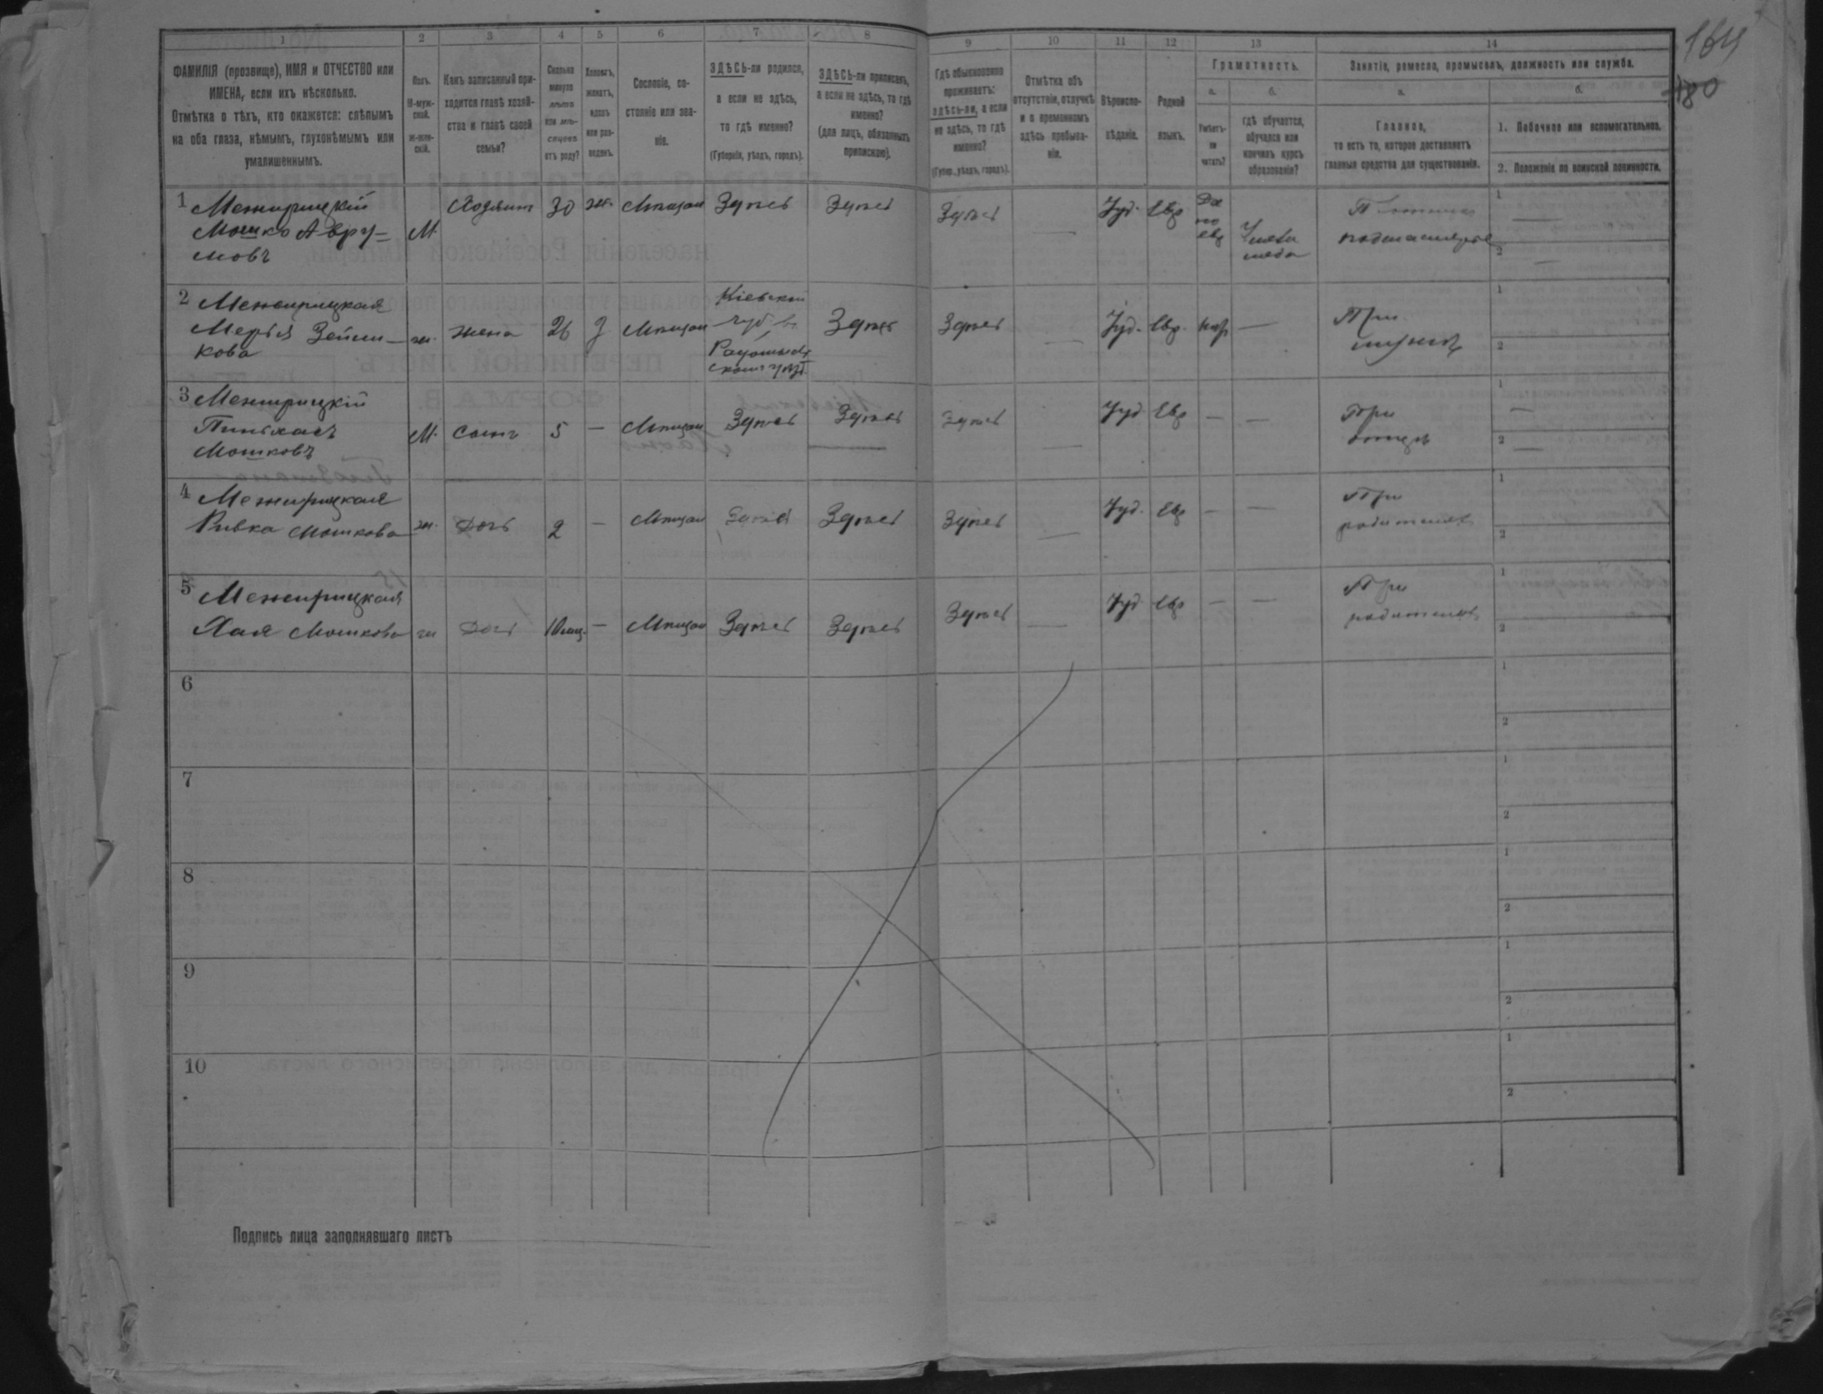 164
180
1 2 3 4 5 6 7 8 9 10 11 12 13 14
ФАМИЛІЯ (прозвище), ИМЯ и ОТЧЕСТВО или
ИМЕНА, если ихъ нѣсколько.
Отмѣтка о тѣхъ, кто окажется: слѣпымъ
на оба глаза, нѣмымъ, глухонѣмымъ или
умалишеннымъ.
Полъ.
М-муж-
ской.
Ж-жен-
скій.
Какъ записанный при-
ходится главѣ хозяй-
ства и главѣ своей
семьи?
Сколько
минуло
лѣтъ
или мѣс-
яцевъ
отъ роду?
Холостъ,
женатъ,
вдовъ
или раз-
веденъ.
Сословіе, со-
стояніе или зва-
ніе.
ЗДѢСЬ-ли родился,
а если не здѣсь,
то гдѣ именно?
(Губернія, уѣздъ, городъ).
ЗДѢСЬ-ли приписанъ,
а если не здѣсь, то гдѣ
именно?
(для лицъ, обязанныхъ
припискою).
Гдѣ обыкновенно
проживаетъ:
здѣсь-ли, а если
не здѣсь, то гдѣ
именно?
(Губер., уѣздъ, городъ).
Отмѣтка объ
отсутствіи, отлучкѣ
и о временномъ
здѣсь пребыва-
ніи.
Вѣроиспо-
вѣданіе.
Родной
языкъ.
Грамотность.
а.
Умѣетъ-
ли
читать?
б.
гдѣ обучается,
обучался или
кончилъ курсъ
образованія?
Занятіе, ремесло, промыселъ, должность или служба.
а.
Главное,
то есть то, которое доставляетъ
главныя средства для существованія.
б.
1. Побочное или вспомогательное.
2. Положеніе по воинской повинности.
1 Межирицкій
Мошко Авру-
мовъ
М
Хозяинъ
30
ж.
Мѣщан
Здѣсь
Здѣсь
Здѣсь
—
Іуд.
Евр
Да
по
евр
1
2
2 Межирицкая
Мерья
кова
ж.
жена
26
З
Мѣщан
Кіевской
губ,
Радомысль-
скомъ уѣзд
Здѣсь
Здѣсь
—
Іуд.
Евр.
нѣт
—
При
мужѣ
1
2
3 Межирицкій
Пинхасъ
Мошковъ
М.
Сынъ
5
—
Мѣщан
Здѣсь
Здѣсь
Здѣсь
—
Іуд
Евр
—
—
При
отцѣ
1
2
4 Межирицкая
Ривка Мошкова
ж.
Дочь
2
—
Мѣщан
Здѣсь
Здѣсь
Здѣсь
—
Іуд.
Евр
—
—
При
родителях
1
2
5 Межирицкая
Хая Мошкова
ж
Дочь
10 мѣц.
—
Мѣщан
Здѣсь
Здѣсь
Здѣсь
—
Іуд
Евр
—
—
При
родителях
1
2
6
1
2
7
1
2
8
1
2
9
1
2
10
1
2
Подпись лица заполнявшаго листъ